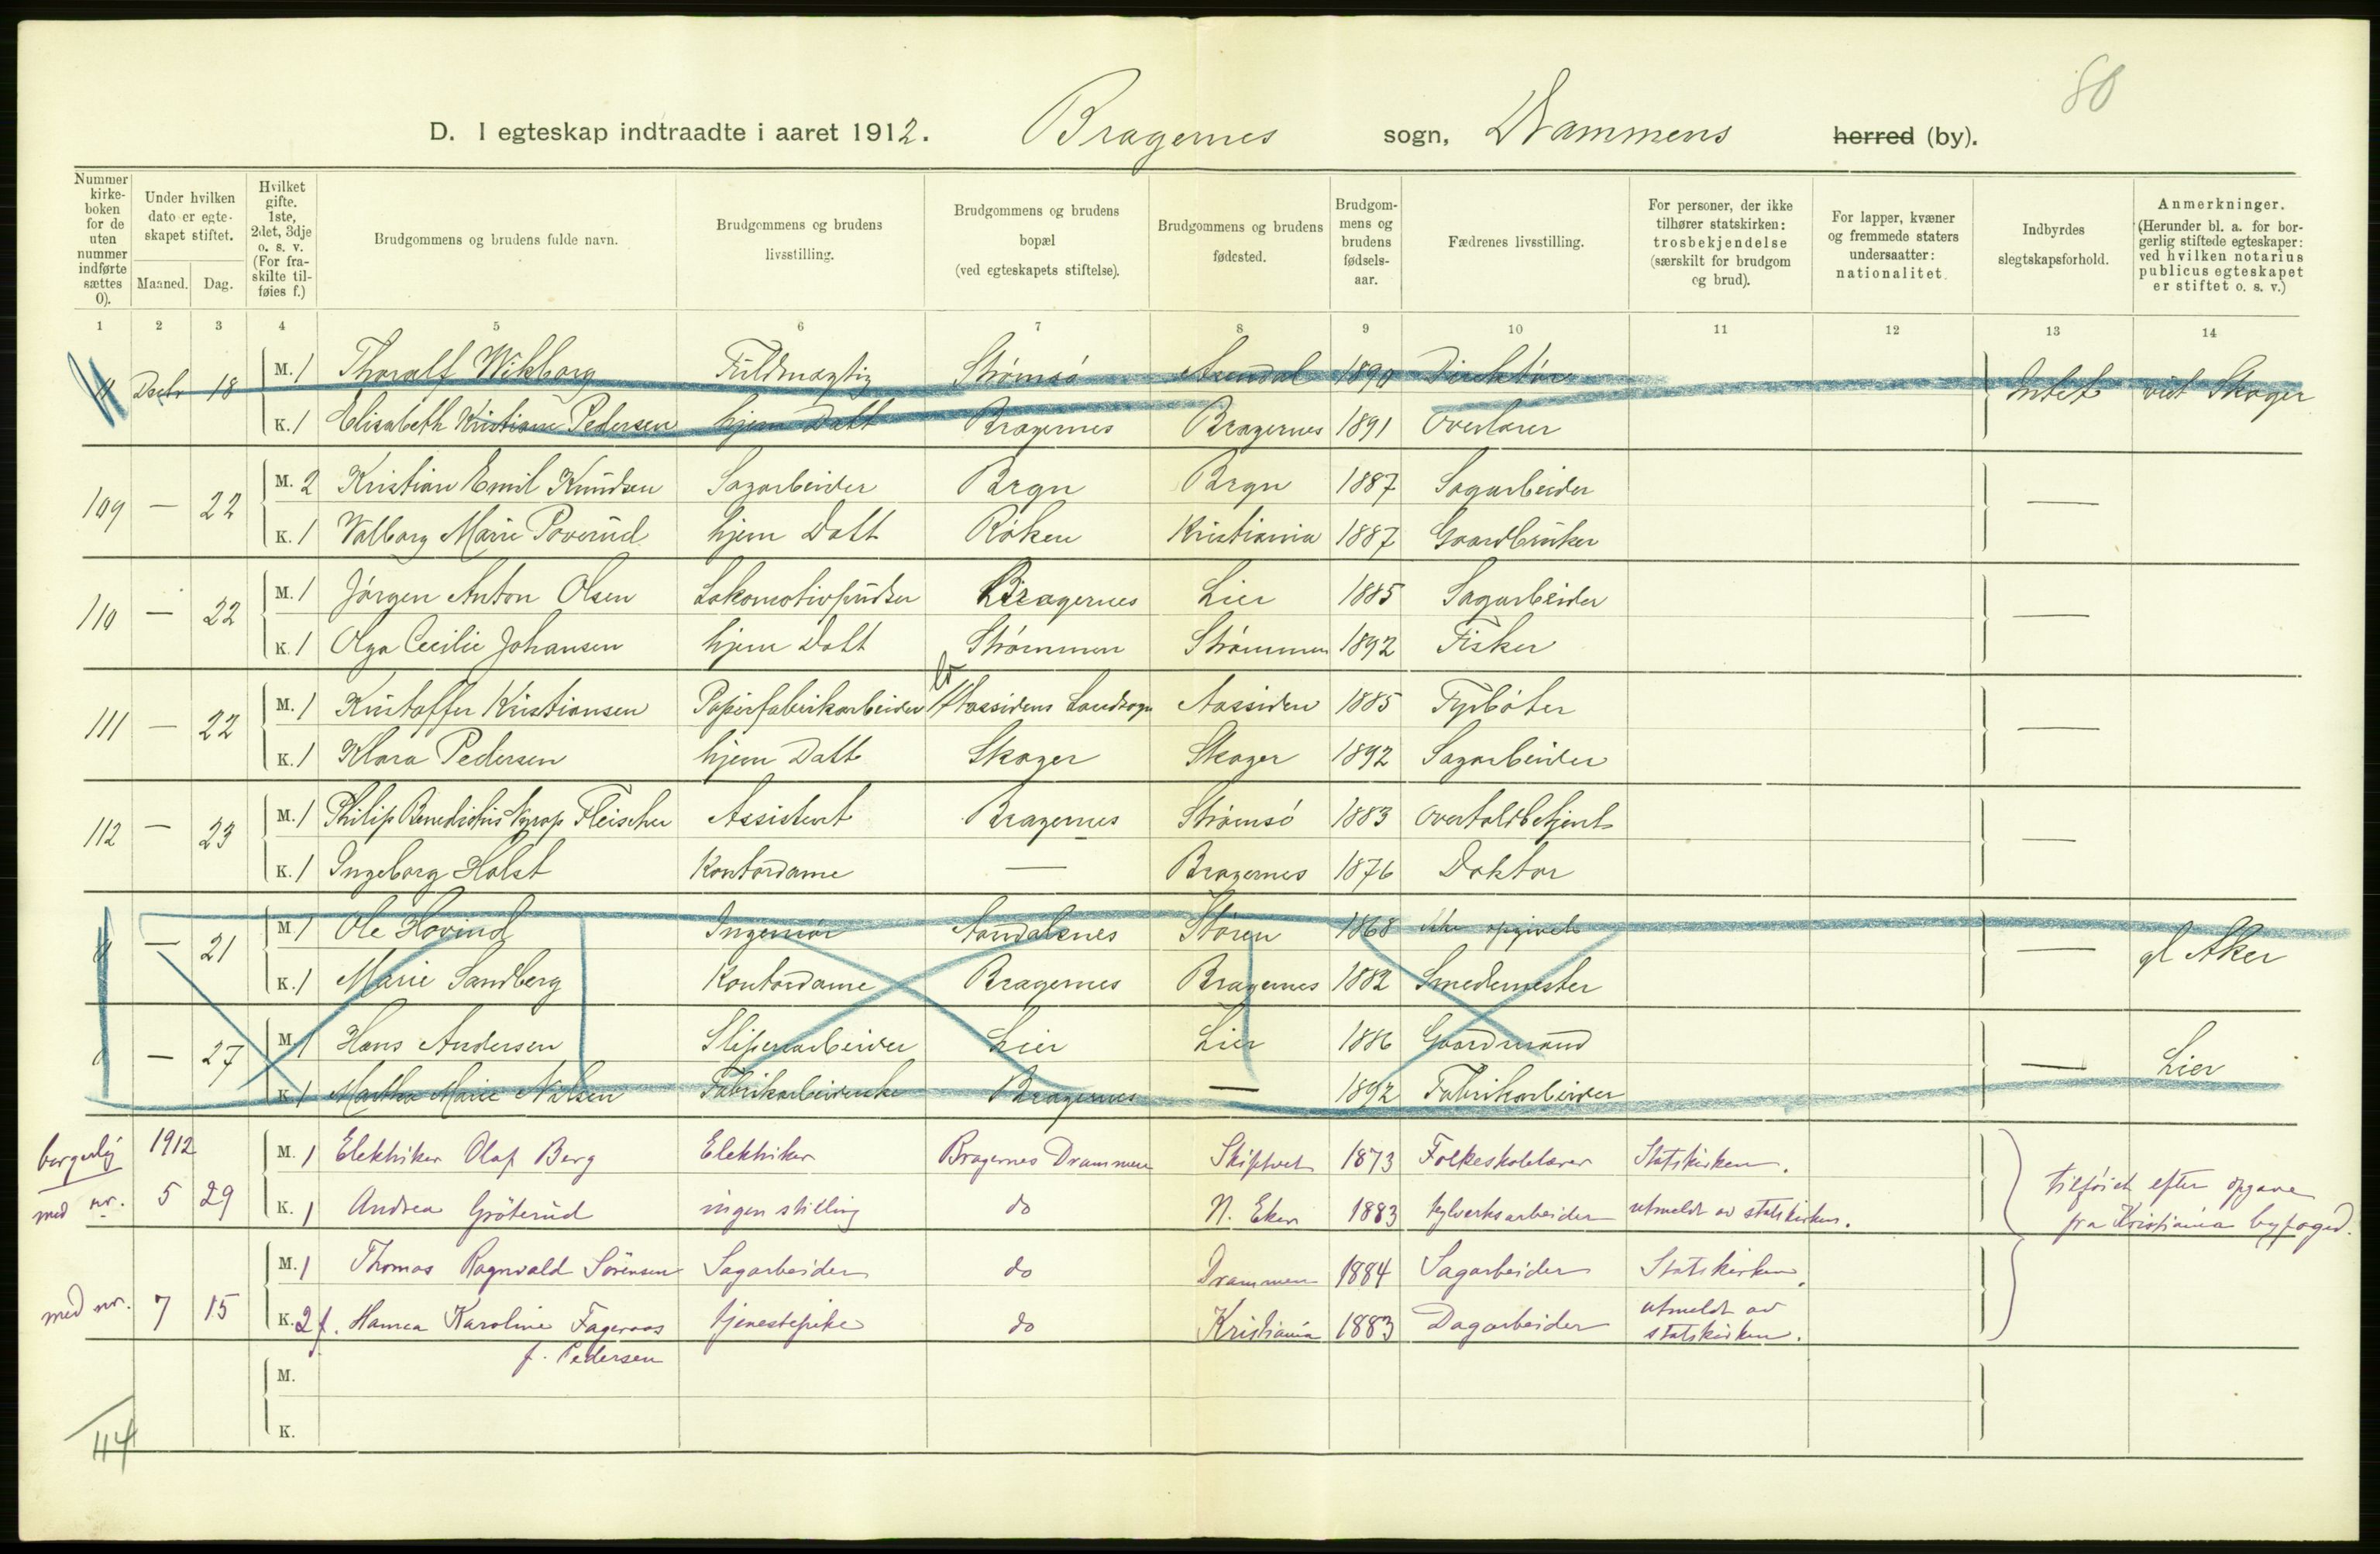 80
D. I egteskap indtraadte i aaret 1912. Bragernes sogn, Drammens herred (by).
Nummer kirke-boken for de uten nummer indførte sættes 0).
Under hvilken dato er egte-skapet stiftet.
Maaned. Dag.
Hvilket gifte. 1ste, 2det, 3dje o. s. v. (For fra-skilte til-føies f.)
Brudgommens og brudens fulde navn.
Brudgommens og brudens livsstilling.
Brudgommens og brudens bopæl (ved egteskapets stiftelse).
Brudgommens og brudens fødested.
Brudgom-mens og brudens fødsels-aar.
Fædrenes livsstilling.
For personer, der ikke tilhører statskirken: trosbekjendelse (særskilt for brudgom og brud).
For lapper, kvæner og fremmede staters undersaatter: nationalitet.
Indbyrdes slegtskapsforhold.
Anmerkninger. (Herunder bl. a. for bor-gerlig stiftede egteskaper: ved hvilken notarius publicus egteskapet er stiftet o. s. v.)
1 2 3 4 5 6 7 8 9 10 11 12 13 14
Decbr 18 M. 1 Thoralf Wikborg Fuldmægtig Strømsø Arendal 1890 Direktør Intet viet Skoger
K. 1 Elisabeth Kristiane Pedersen hjem Datt Bragernes Bragernes 1891 Overlærer
109 — 22 M. 2 Kristian Emil Knudsen Sagarbeider Brgn Brgn 1887 Sagarbeider —
K. 1 Valborg Marie Poverud hjem Datt Røken Kristiania 1887 Gaardbruker
110 — 22 M. 1 Jørgen Anton Olsen Lokomotivpudser Bragernes Lier 1885 Sagarbeider —
K. 1 Olga Cecilie Johansen hjem Datt Strømmen Strømmen 1892 Fisker
111 — 22 M. 1 Kristoffer Kristiansen Papirfabrikarbeider Aassidens Landsogn Aassiden 1885 Fyrbøter —
K. 1 Klara Pedersen hjem Datt Skoger Skoger 1892 Sagarbeider
112 — 23 M. 1 Philip Benedictus Nyrop Fleischer Assistent Bragernes Strømsø 1883 Overtoldbetjent —
K. 1 Ingeborg Holst Kontordame — Bragernes 1876 Doktor
0 — 21 M. 1 Ole Hovind Ingeniør Aandalsnes Støren 1868 ikke opgivet — gl Aker
K. 1 Marie Sandberg Kontordame Bragernes Bragernes 1882 Smedemester
0 — 27 M. 1 Hans Andersen Sliperiarbeider Lier Lier 1886 Gaardmand — Lier
K. 1 Martha Marie Nilsen Fabrikarbeiderske Bragernes — 1892 Fabrikarbeider
borgerlig 1912 M. 1 Elektriker Olaf Berg Elektriker Bragernes Drammen Skiptvet 1873 Folkeskolelærer Statskirken. tilføiet efter opgave
med nr. 5 29 K. 1 Andrea Grøterud ingen stilling do N. Eker 1883 tylverksarbeider utmeldt av statskirken. fra Kristiania byfoged.
M. 1 Thomas Ragnvald Sørensen Sagarbeider do Drammen 1884 Sagarbeider Statskirken.
med nr. 7 15 K. 2 f. Hanna Karoline Fageraas tjenestepike do Kristiania 1883 Dagarbeider utmeldt av statskirken.
f. Pedersen
M.
K.
114